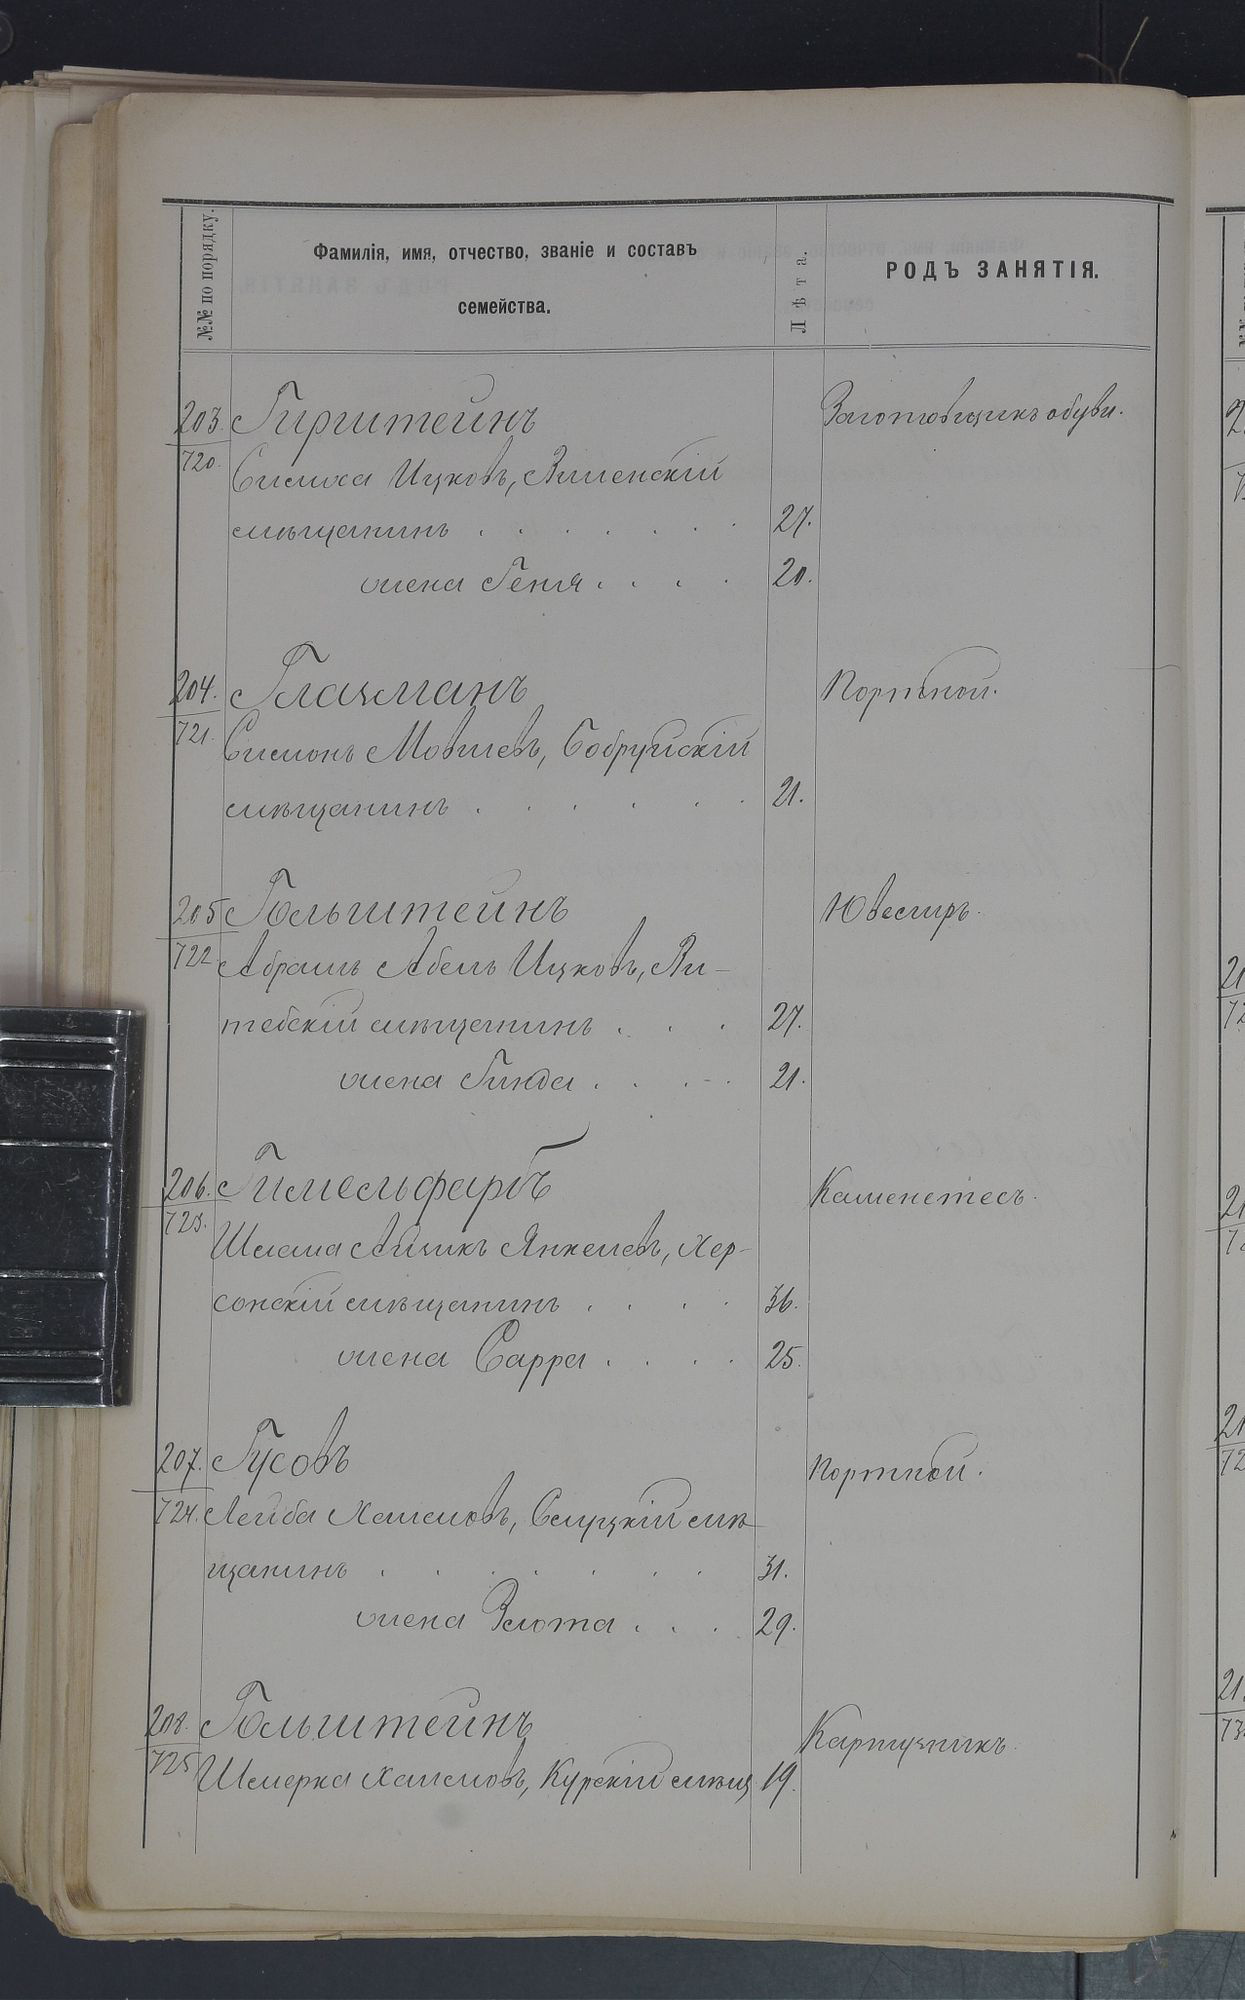 №№ по порядку.
Фамилія, имя, отчество, званіе и составъ
семейства.
Лѣта.
РОДЪ ЗАНЯТІЯ.
203. Гирштейнъ Заготовщикъ обуви.
720. Симха Ицковъ, Виленскій
мѣщанинъ . . . . . . 27.
жена Геня . . . . 20.
204. Глазманъ Портной.
721. Симонъ Мовшевъ, Бобруйскій
мѣщанинъ . . . . . . 21.
205 Гольштейнъ Ювелиръ.
722 Абрамъ Абель Ицковъ, Ви-
тебскій мѣщанинъ . . . 27.
жена Гинда . . . . 21.
206. Гимельфарбъ Каменотесъ.
723. Шлема Айзикъ Янкелевъ, Хер-
сонскій мѣщанинъ . . . . 36.
жена Сарра . . . . 25.
207. Гусовъ Портной.
724. Лейба Хаимовъ, Слуцкій мѣ-
щанинъ . . . . . . . 31.
жена Злота . . . 29.
208. Гольштейнъ Картузникъ.
725 Шмерка Хаимовъ, Курскій мѣщ 19.